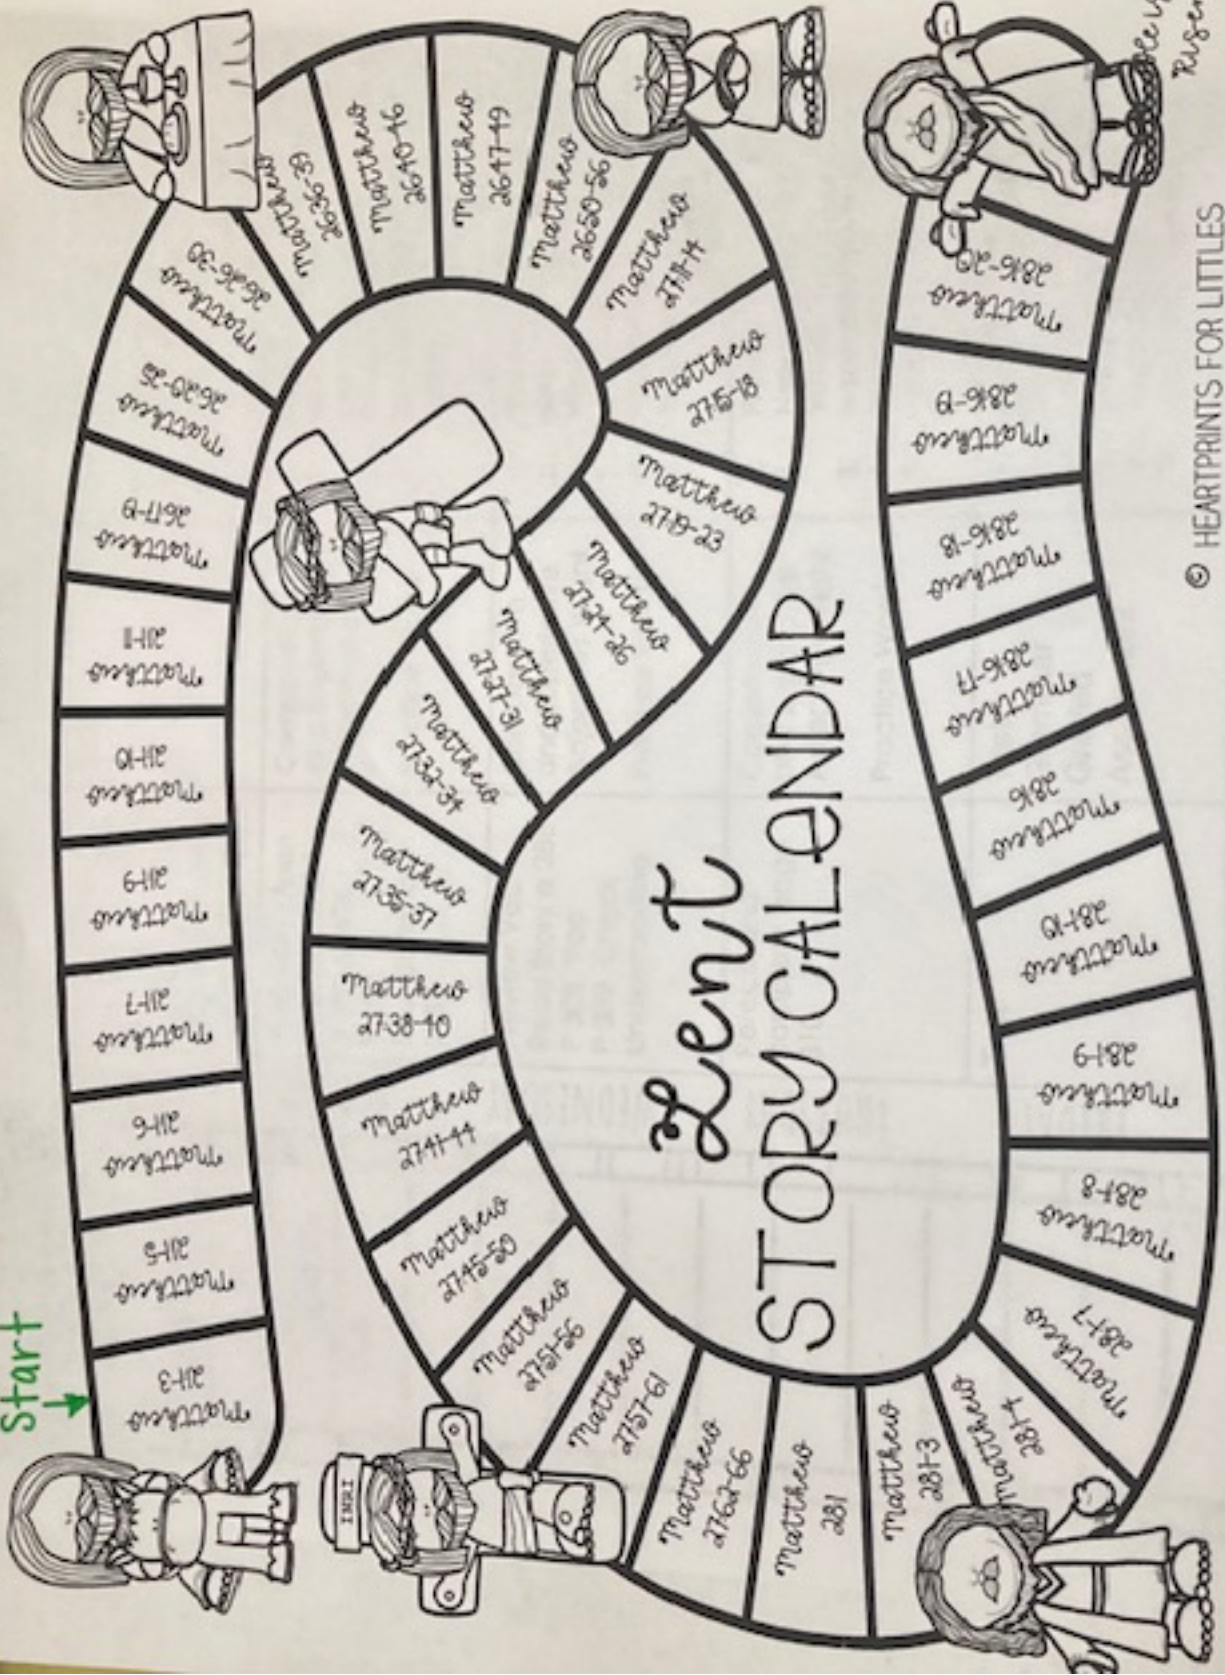 Lent
STORY CALENDAR
Start
Matthew
21:1-3
Matthew
21:1-5
Matthew
21:1-6
Matthew
21:1-7
Matthew
21:1-9
Matthew
21:1-10
Matthew
21:1-11
Matthew
26:17-19
Matthew
26:20-25
Matthew
26:26-30
Matthew
26:36-39
Matthew
26:40-46
Matthew
26:47-49
Matthew
26:50-56
Matthew
27:11-14
Matthew
27:15-18
Matthew
27:19-23
Matthew
27:24-26
Matthew
27:27-31
Matthew
27:32-34
Matthew
27:35-37
Matthew
27:38-40
Matthew
27:41-44
Matthew
27:45-50
Matthew
27:51-56
Matthew
27:57-61
Matthew
27:62-66
Matthew
28:1
Matthew
28:1-3
Matthew
28:1-4
Matthew
28:1-7
Matthew
28:1-8
Matthew
28:1-9
Matthew
28:1-10
Matthew
28:16
Matthew
28:16-17
Matthew
28:16-18
Matthew
28:16-19
Matthew
28:16-20
INRI
He is
© HEARTPRINTS FOR LITTLES